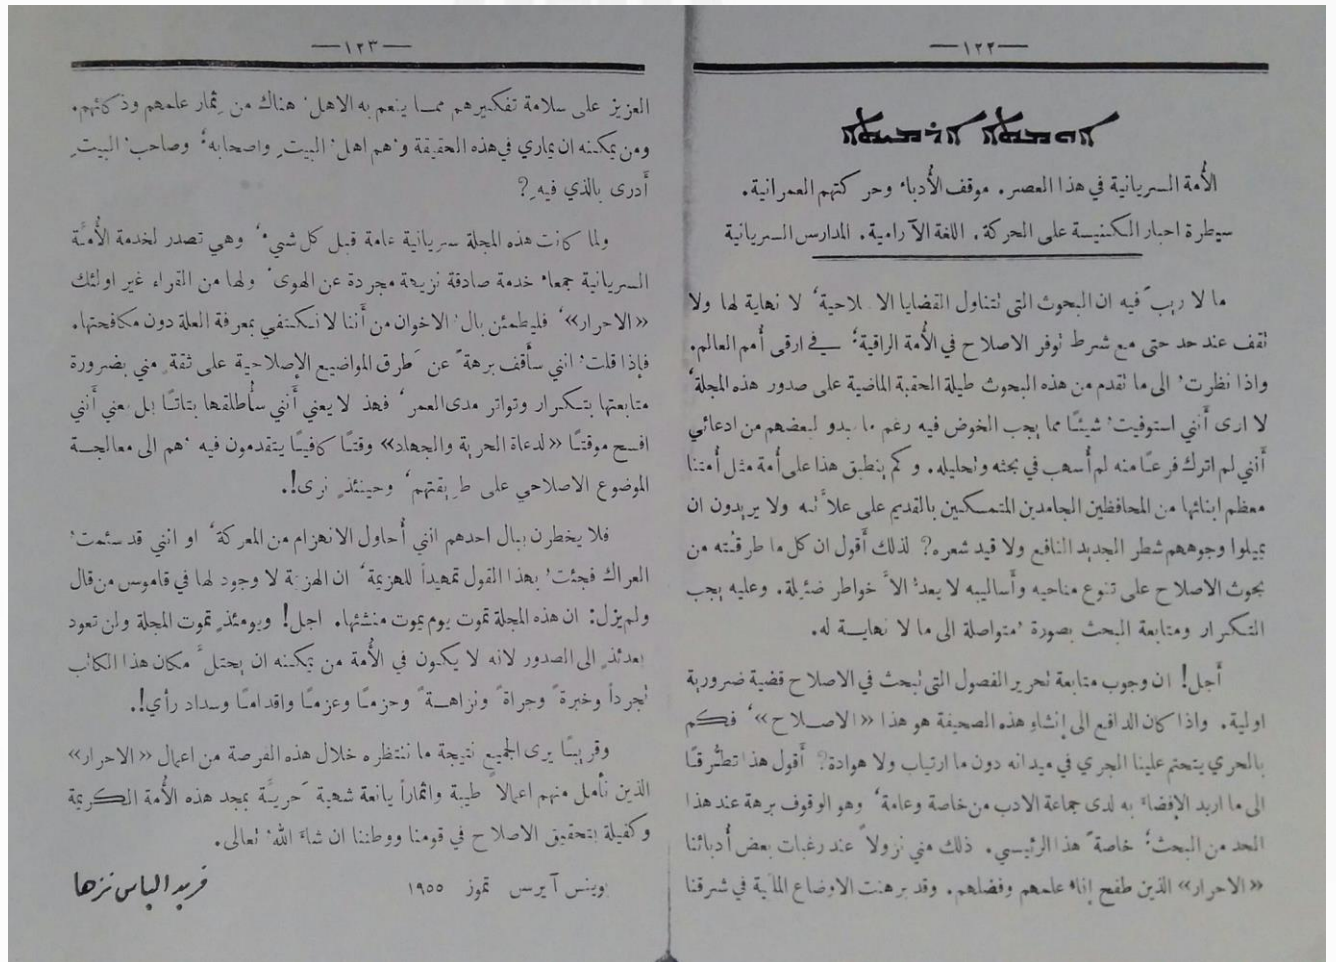 —١٢٢—
ܐܘܡܬܢܐ ܐܪܡܝܬܐ
الأُمة السريانية في هذا العصر. موقف الأُدباء وحركتهم العمرانية.
سيطرة احبار الكنيسة على الحركة. اللغة الآرامية. المدارس السريانية
ما لا ريب فيه ان البحوث التي تتناول القضايا الاصلاحية، لا نهاية لها ولا
تقف عند حد حتى مع شرط توفر الاصلاح في الأُمة الراقية؛ في ارقى أُمم العالم.
واذا نظرت الى ما تقدم من هذه البحوث طيلة الحقبة الماضية على صدور هذه المجلة،
لا ارى أَنني استوفيت شيئًا مما يجب الخوض فيه رغم ما يبدو لبعضهم من ادعائي
أَنني لم اترك فرعًا منه لم أُسهب في بحثه وتحليله. وكم ينطبق هذا على أُمة مثل أُمتنا
معظم ابنائها من المحافظين الجامدين المتمسكين بالقديم على علاَّته ولا يريدون ان
يميلوا وجوههم شطر الجديد النافع ولا قيد شعره؟ لذلك أَقول ان كل ما طرقته من
بحوث الاصلاح على تنوع مناحيه وأَساليبه لا يعدُّ الاَّ خواطر ضئيلة. وعليه يجب
التكرار ومتابعة البحث بصورة متواصلة الى ما لا نهاية له.
أَجل! ان وجوب متابعة تحرير الفصول التي تبحث في الاصلاح قضية ضرورية
اولية. واذا كان الدافع الى إنشاءِ هذه الصحيفة هو هذا «الاصلاح»، فكم
بالحري يتحتم علينا الجري في ميدانه دون ما ارتياب ولا هوادة؟ أَقول هذا تطرُّقًا
الى ما اريد الإفضاءَ به لدى جماعة الادب من خاصة وعامة، وهو الوقوف برهة عند هذا
الحد من البحث؛ خاصةً هذا الرئيسي. ذلك مني نزولاً عند رغبات بعض أُدبائنا
«الاحرار» الذين طفح إناءُ علمهم وفضلهم. وقد برهنت الاوضاع الملية في شرقنا
—١٢٣—
العزيز على سلامة تفكيرهم مما ينعم به الاهل هناك من ثمار علمهم وذكائهم.
ومن يمكنه ان يماري في هذه الحقيقة وهم اهل البيتِ واصحابه؛ وصاحب البيتِ
أَدرى بالذي فيهِ؟
ولما كانت هذه المجلة سريانية عامة قبل كل شيء، وهي تصدر لخدمة الأُمَّة
السريانية جمعاء خدمة صادقة نزيهة مجردة عن الهوى، ولها من القراء غير اولئك
«الاحرار»، فليطمئن بال الاخوان من أَننا لا نكتفي بمعرفة العلة دون مكافحتها.
فإذا قلت انني سأَقف برهةً عن طرق المواضيع الإصلاحية على ثقةٍ مني بضرورة
متابعتها بتكرار وتواتر مدى العمر، فهذ لا يعني أَنني سأُطلقها بتاتًا بل يعني أَنني
افسح موقتًا «لدعاة الحرية والجهاد» وقتًا كافيًا يتقدمون فيه هم الى معالجة
الموضوع الاصلاحي على طريقتهم، وحينئذٍ نرى!.
فلا يخطرن ببال احدهم انني أُحاول الانهزام من المعركة، او انني قد سئمت
العراك فجئت بهذا القول تمهيداً للهزيمة، ان الهزيمة لا وجود لها في قاموس من قال
ولم يزل: ان هذه المجلة تموت يوم يموت منشئها. اجل! ويومئذٍ تموت المجلة ولن تعود
بعدئذٍ الى الصدور لانه لا يكون في الأُمة من يمكنه ان يحتلَّ مكان هذا الكاتب
تجرداً وخبرةً وجرأةً ونزاهةً وحزمًا وعزمًا واقدامًا وسداد رأي!.
وقريبًا يرى الجميع نتيجة ما ننتظره خلال هذه الفرصة من اعمال «الاحرار»
الذين نأمل منهم اعمالاً طيبة واثماراً يانعة شهية حريَّة بمجد هذه الأُمة الكريمة
وكفيلة بتحقيق الاصلاح في قومنا ووطننا ان شاءَ اللهُ تعالى.
بوينس آيرس تموز ١٩٥٥
فريد الياس نزها